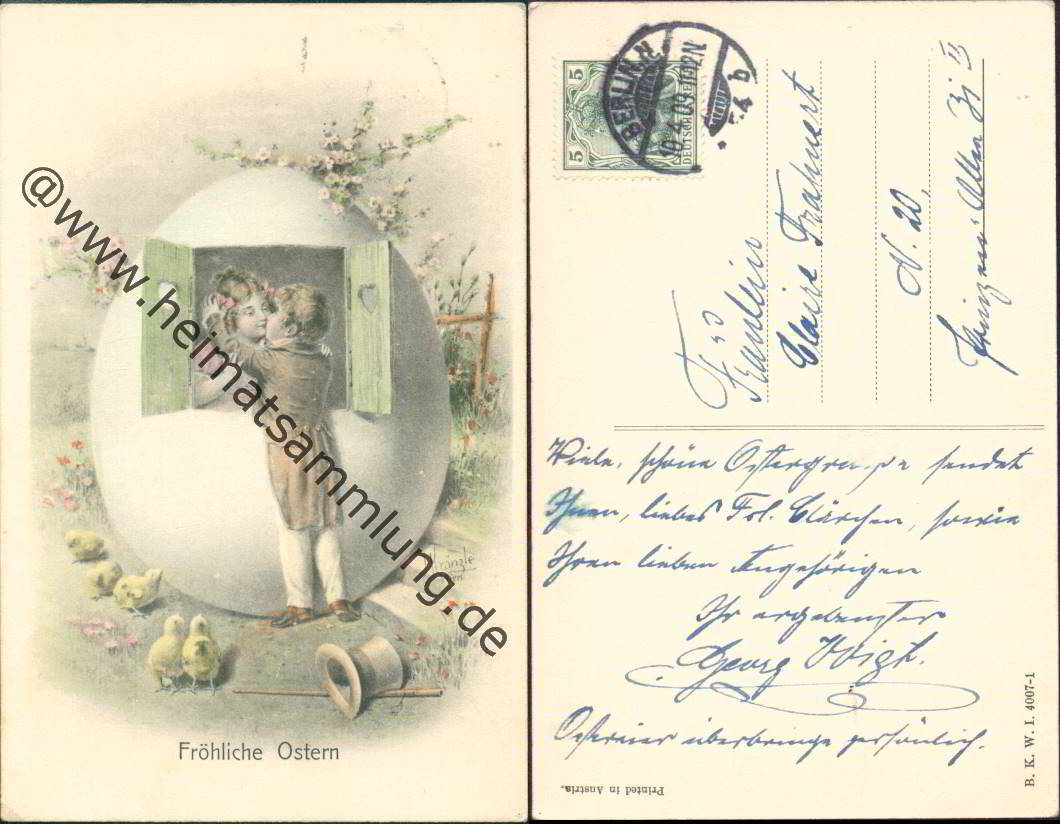 @www.heimatsammlung.de
Kränzle
Fröhliche Ostern
5
5
DEUTSCHES REICH
BERLIN N.
10.4.09.11-12N.
54 b
Fräulein
Claire Frahnert
N. 20,
Prinzen Allee
Viele, schöne Ostergrüsse sendet
Ihnen, liebes Frl. Clärchen, sowie
Ihren lieben Angehörigen
Ihr ergebenster
Georg Voigt.
Ostereier überbringe persönlich.
Printed in Austria.
B. K. W. I. 4007-1